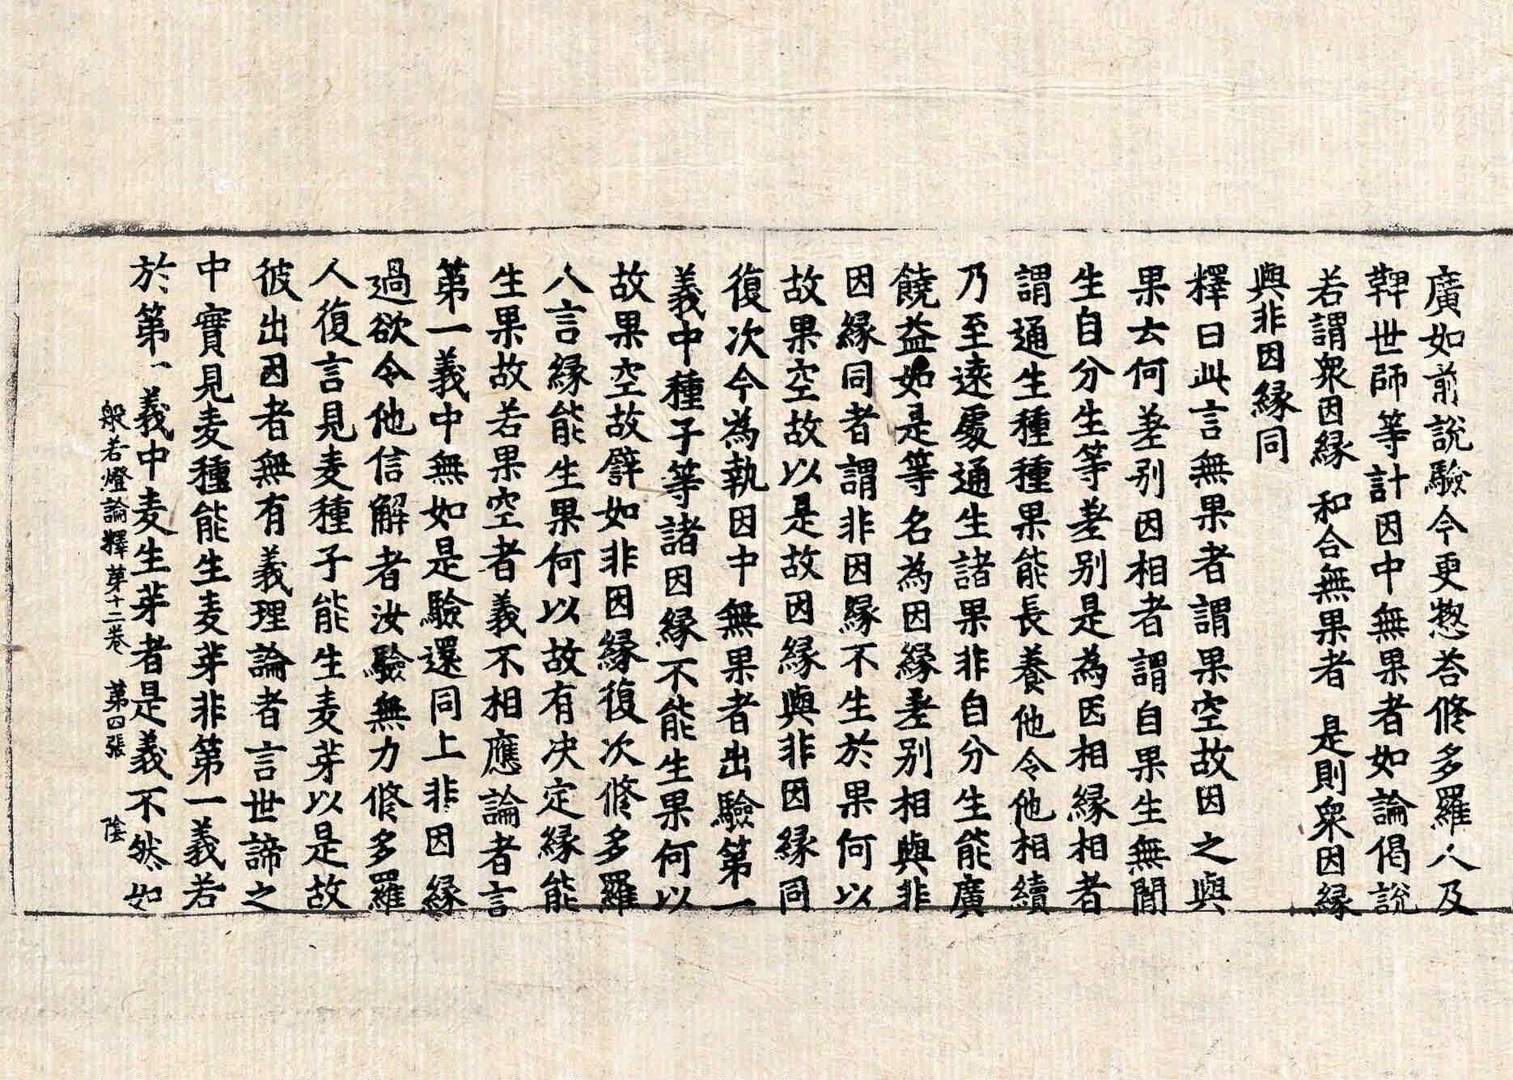 廣如前說驗今更㧾荅修多羅人及
鞞世師等計因中無果者如論偈說
若謂衆因緣 和合無果者 是則衆因緣
與非因緣同
釋曰此言無果者謂果空故因之與
果去何差别因相者謂自果生無間
生自分生等差别是為因相緣相者
謂通生種種果能長養他令他相續
乃至遠處通生諸果非自分生能廣
饒益如是等名為因緣差别相與非
因緣同者謂非因緣不生於果何以
故果空故以是故因緣與非因緣同
復次今為執因中無果者出驗第一
義中種子等諸因緣不能生果何以
故果空故譬如非因緣復次修多羅
人言緣能生果何以故有决定緣能
生果故若果空者義不相應論者言
第一義中無如是驗還同上非因緣
過欲令他信解者汝驗無力修多羅
人復言見麦種子能生麦芽以是故
彼出因者無有義理論者言世諦之
中實見麦種能生麦芽非第一義若
於第一義中麦生芽者是義不然如
般若燈論釋苐十二卷 第四張 隂